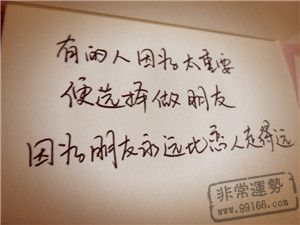 有的人因为太重要
便选择做朋友
因为朋友永远比恋人走得远
非常運勢
www.99166.com